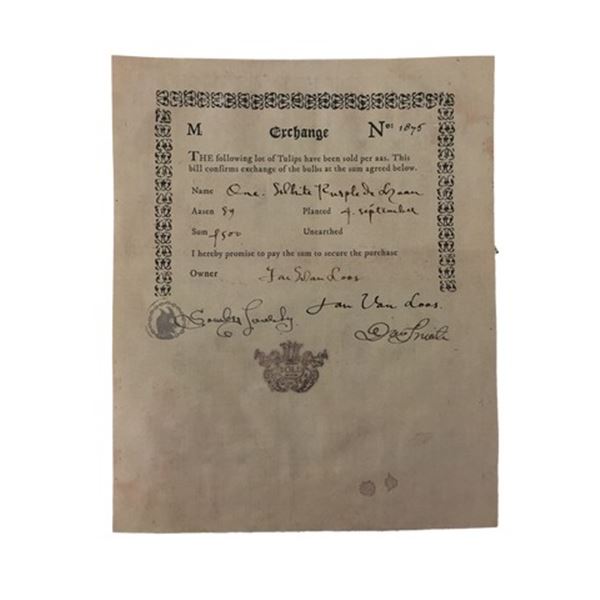 M Exchange No: 1875
THE following lot of Tulips have been sold per aas. This
bill confirms exchange of the bulbs at the sum agreed below.
Name One. White Purple de
Aasen 89 Planted 4. september
Sum Unearthed
I hereby promise to pay the sum to secure the purchase
Owner Jan Van Loos
Jan Van Loos.
SOLD